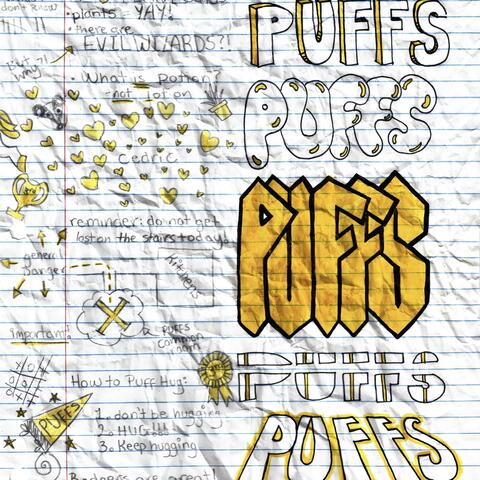 don't know
plants - YAY!
there are
EVIL WIZARDS?!
• What is potion?
- not lotion
Cedric
reminder: do not get
lost on the stairs today!
general
Danger
kitchens
X
PUFFS
common
room
important!
How to Puff Hug:
1. don't be hugging
2. HUG!!!
3. Keep hugging
PUFFS
Badgers are great!
PUFFS
PUFFS
PUFFS
PUFFS
PUFFS